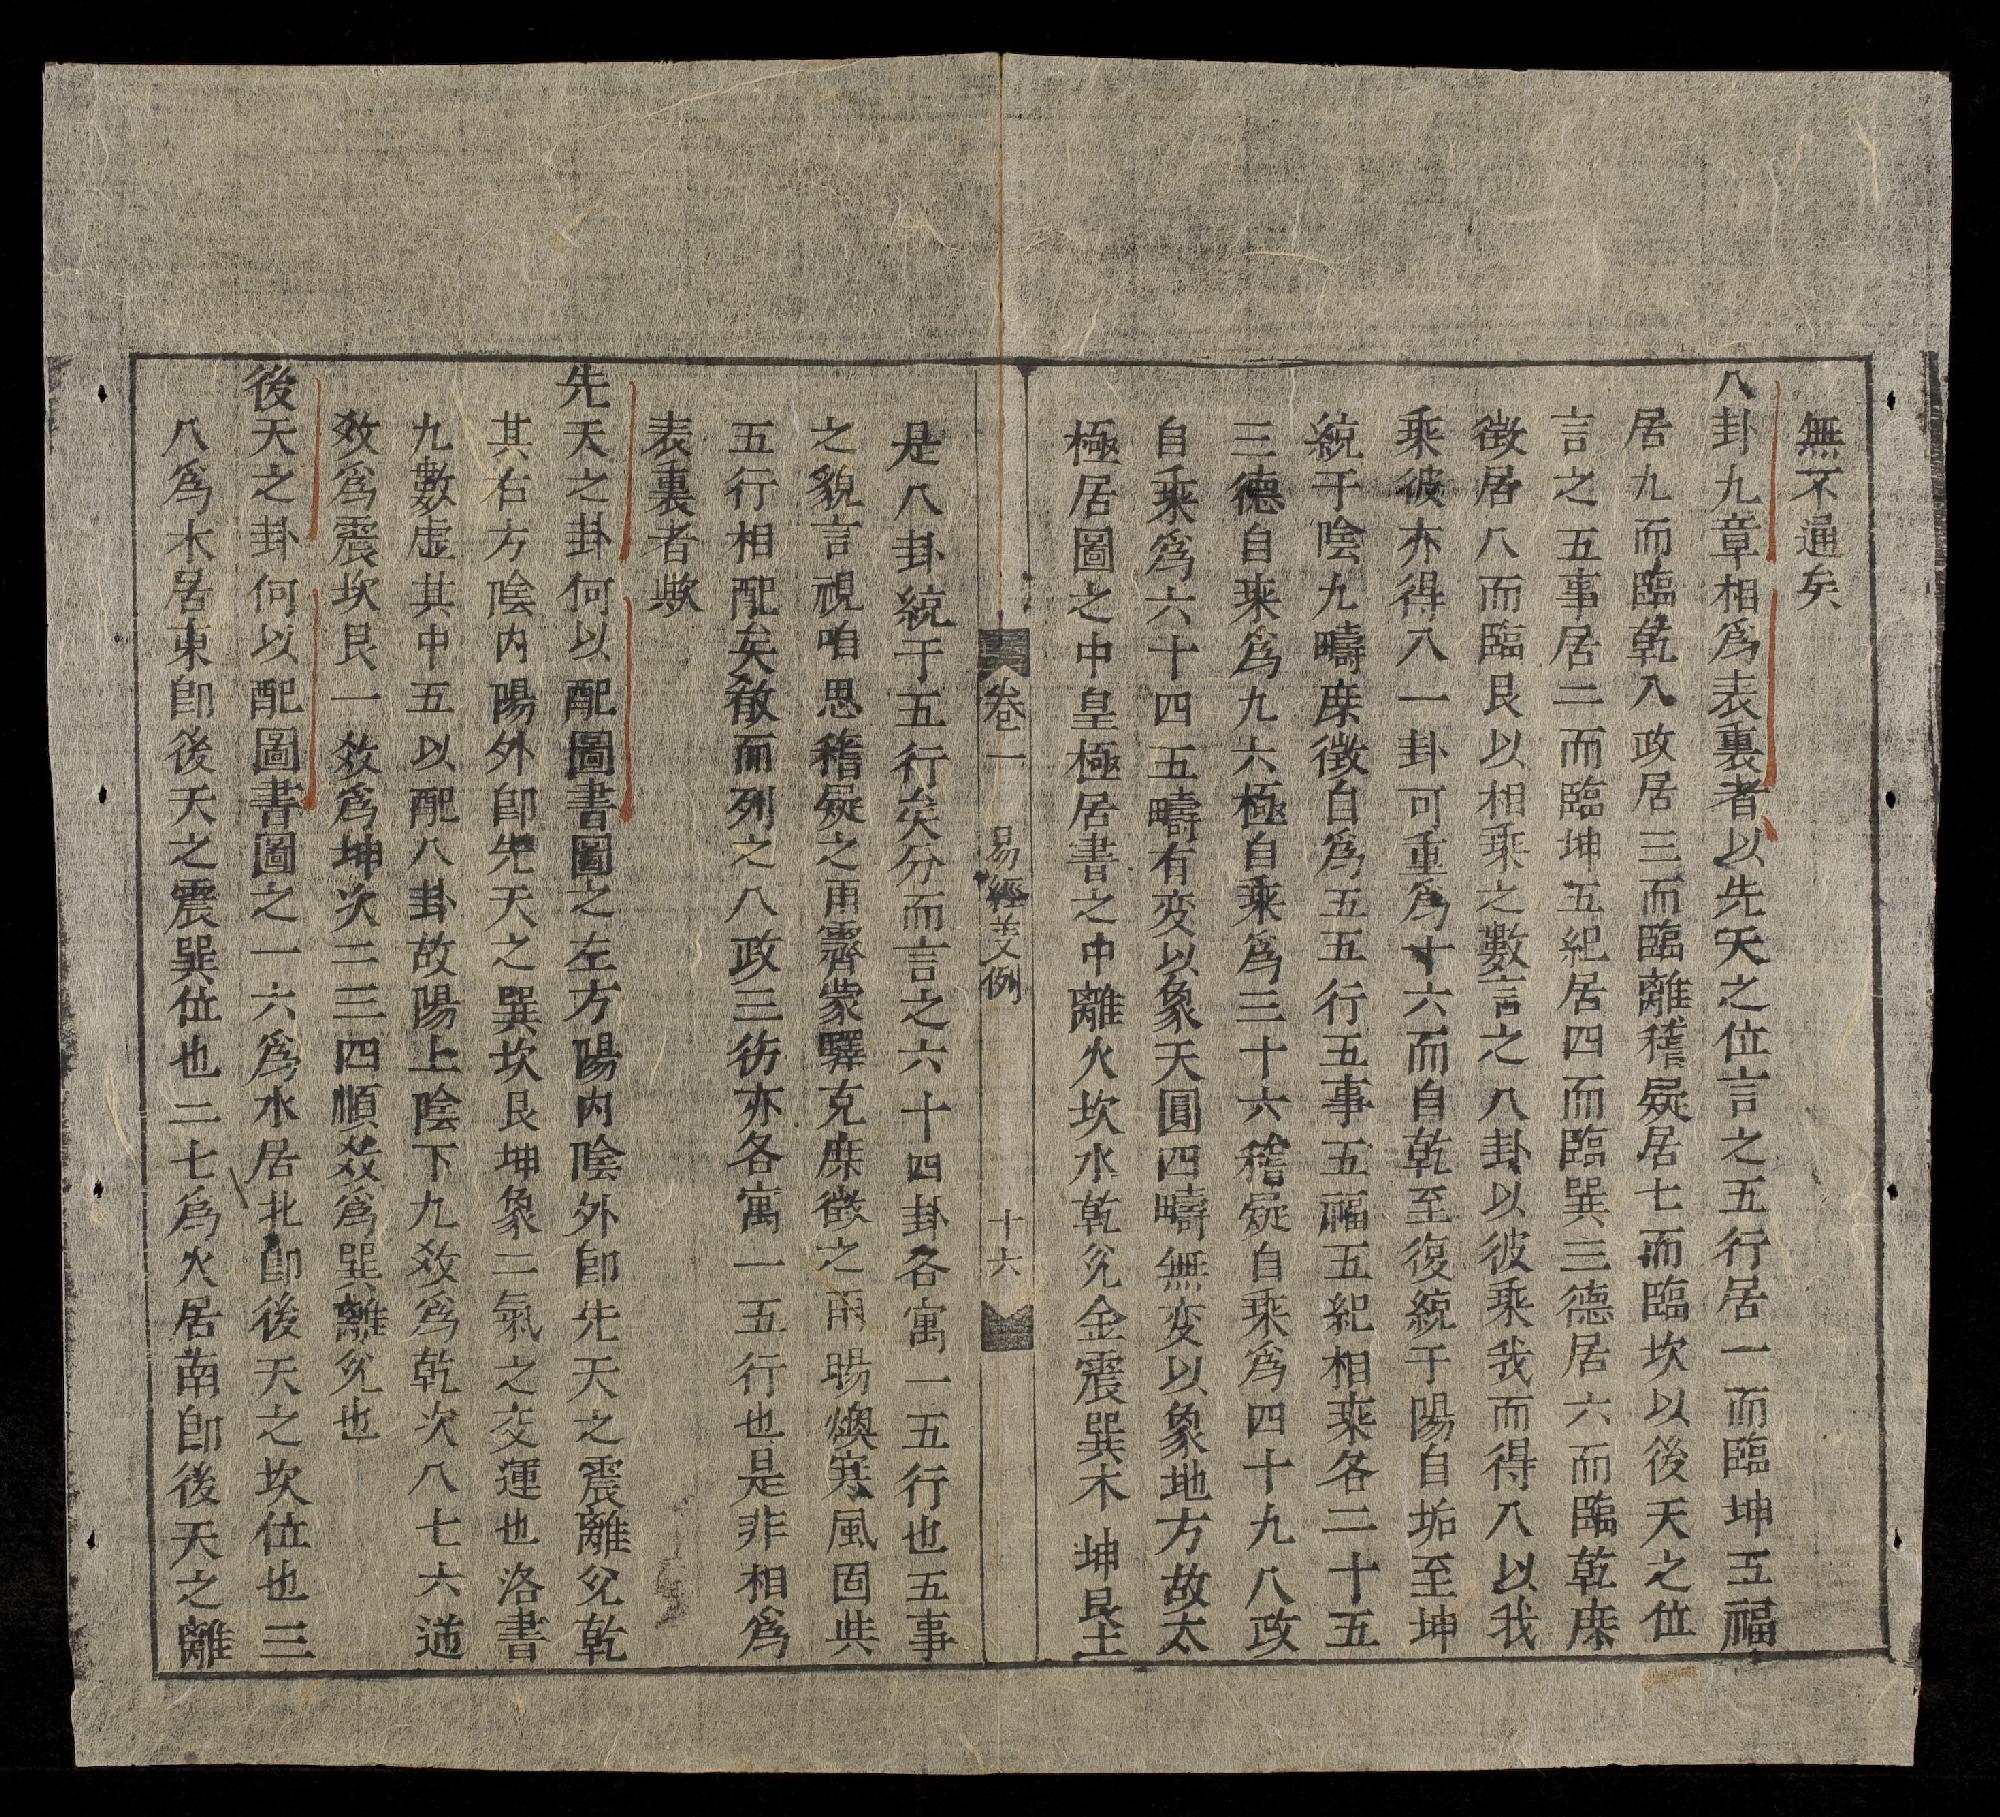 無不通矣
八卦九章相爲表裏者以先天之位言之五行居一而臨坤五福
居九而臨乾八政居三而臨離稽疑居七而臨坎以後天之位
言之五事居二而臨坤五紀居四而臨巽三德居六而臨乾庶
徵居八而臨艮以相乘之數言之八卦以彼乘我而得八以我
乘彼亦得八一卦可重爲十六而自乾至復統于陽自垢至坤
統于陰九疇庶徵自爲五五行五事五福五紀相乘各二十五
三德自乘爲九六極自乘爲三十六稽疑自乘爲四十九八政
自乘爲六十四五疇有変以象天圓四疇無変以象地方故太
極居圖之中皇極居書之中離火坎水乾兊金震巽木坤艮土
卷一 易經義例 十六
是八卦統于五行矣分而言之六十四卦各寓一五行也五事
之貌言視咱思稽疑之雨霽蒙驛克庶徵之雨暘燠寒風固與
五行相配矣散而列之八政三彷亦各寓一五行也是非相爲
表裏者歟
先天之卦何以配圖書圖之左方陽内陰外卽先天之震離兊乾
其右方陰内陽外卽先天之巽坎艮坤象二氣之交運也洛書
九數虛其中五以配八卦故陽上陰下九效爲乾次八七六逆
效爲震坎艮一效爲坤次二三四順效爲巽離兊也
後天之卦何以配圖書圖之一六爲水居北卽後天之坎位也三
八爲木居東卽後天之震巽位也二七爲火居南卽後天之離